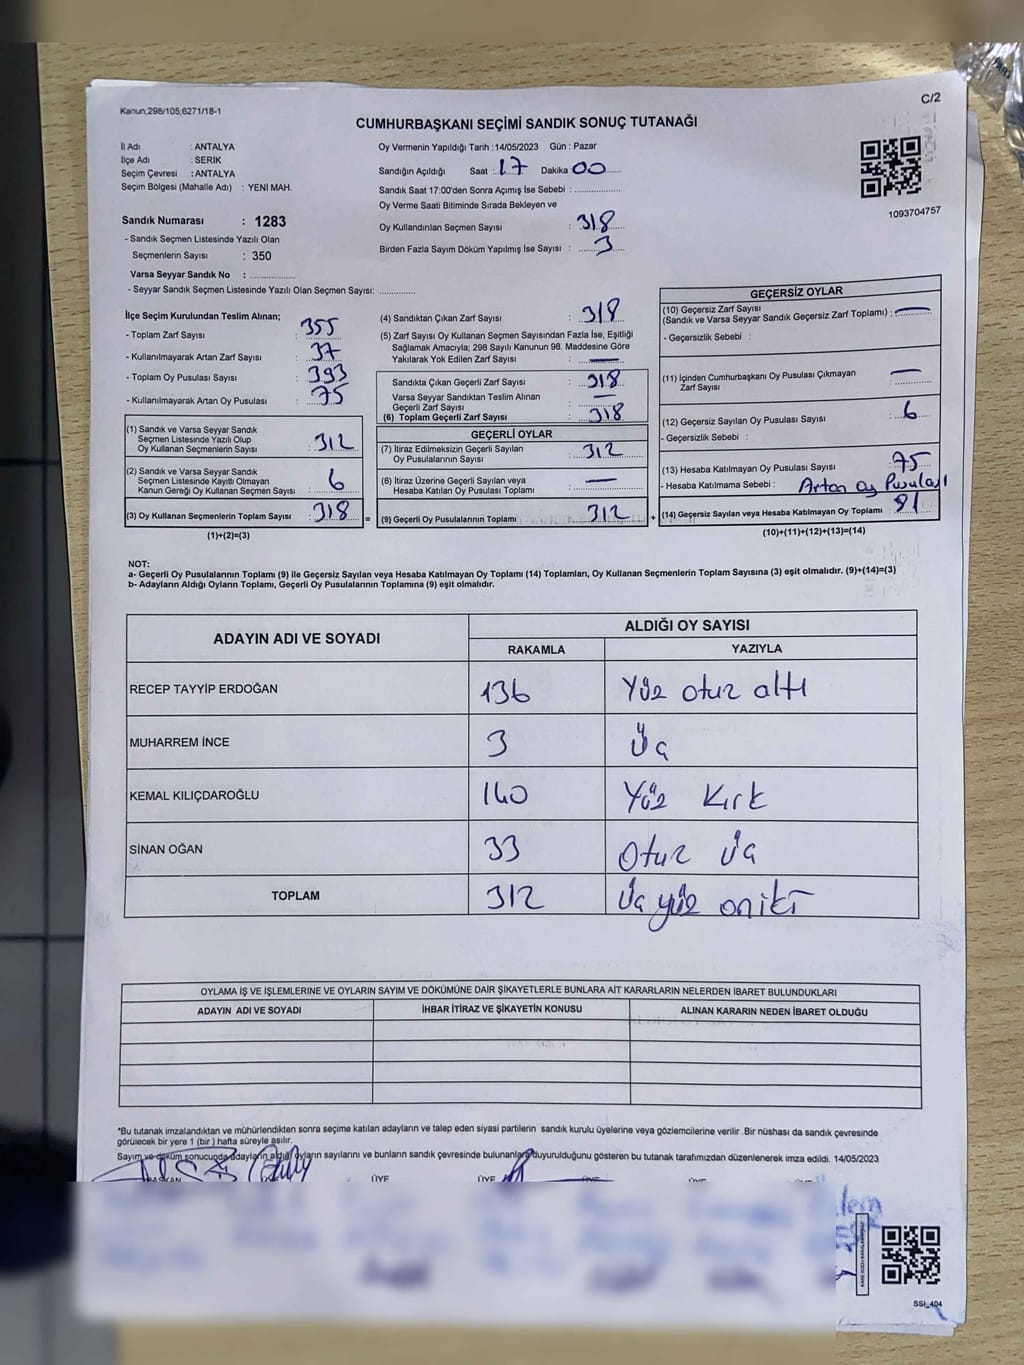 Kanun,298/105,6271/18-1
C/2
CUMHURBAŞKANI SEÇİMİ SANDIK SONUÇ TUTANAĞI
İl Adı : ANTALYA
İlçe Adı : SERİK
Seçim Çevresi : ANTALYA
Seçim Bölgesi (Mahalle Adı) : YENİ MAH.
Oy Vermenin Yapıldığı Tarih :14/05/2023 Gün : Pazar
Sandığın Açıldığı Saat : 17 Dakika 00
Sandık Saat 17:00'den Sonra Açımış İse Sebebi :
Oy Verme Saati Bitiminde Sırada Bekleyen ve
Oy Kullandırılan Seçmen Sayısı : 318
Birden Fazla Sayım Döküm Yapılmış İse Sayısı : 3
1093704757
Sandık Numarası : 1283
- Sandık Seçmen Listesinde Yazılı Olan
Seçmenlerin Sayısı : 350
Varsa Seyyar Sandık No :
- Seyyar Sandık Seçmen Listesinde Yazılı Olan Seçmen Sayısı:
İlçe Seçim Kurulundan Teslim Alınan;
- Toplam Zarf Sayısı : 355
- Kullanılmayarak Artan Zarf Sayısı : 37
- Toplam Oy Pusulası Sayısı : 393
- Kullanılmayarak Artan Oy Pusulası : 75
(1) Sandık ve Varsa Seyyar Sandık
Seçmen Listesinde Yazılı Olup
Oy Kullanan Seçmenlerin Sayısı : 312
(2) Sandık ve Varsa Seyyar Sandık
Seçmen Listesinde Kayıtlı Olmayan
Kanun Gereği Oy Kullanan Seçmen Sayısı : 6
(3) Oy Kullanan Seçmenlerin Toplam Sayısı : 318 =
(1)+(2)=(3)
(4) Sandıktan Çıkan Zarf Sayısı : 318
(5) Zarf Sayısı Oy Kullanan Seçmen Sayısından Fazla İse, Eşitliği
Sağlamak Amacıyla; 298 Sayılı Kanunun 98. Maddesine Göre
Yakılarak Yok Edilen Zarf Sayısı : —
Sandıkta Çıkan Geçerli Zarf Sayısı : 318
Varsa Seyyar Sandıktan Teslim Alınan
Geçerli Zarf Sayısı : —
(6) Toplam Geçerli Zarf Sayısı : 318
GEÇERLİ OYLAR
(7) İtiraz Edilmeksizin Geçerli Sayılan
Oy Pusulalarının Sayısı : 312
(8) İtiraz Üzerine Geçerli Sayılan veya
Hesaba Katılan Oy Pusulası Toplamı : —
(9) Geçerli Oy Pusulalarının Toplamı : 312 +
GEÇERSİZ OYLAR
(10) Geçersiz Zarf Sayısı
(Sandık ve Varsa Seyyar Sandık Geçersiz Zarf Toplamı) : —
- Geçersizlik Sebebi :
(11) İçinden Cumhurbaşkanı Oy Pusulası Çıkmayan
Zarf Sayısı : —
(12) Geçersiz Sayılan Oy Pusulası Sayısı : 6
- Geçersizlik Sebebi :
(13) Hesaba Katılmayan Oy Pusulası Sayısı : 75
- Hesaba Katılmama Sebebi : Artan oy Pusulası
(14) Geçersiz Sayılan veya Hesaba Katılmayan Oy Toplamı : 81
(10)+(11)+(12)+(13)=(14)
NOT:
a- Geçerli Oy Pusulalarının Toplamı (9) ile Geçersiz Sayılan veya Hesaba Katılmayan Oy Toplamı (14) Toplamları, Oy Kullanan Seçmenlerin Toplam Sayısına (3) eşit olmalıdır. (9)+(14)=(3)
b- Adayların Aldığı Oyların Toplamı, Geçerli Oy Pusulalarının Toplamına (9) eşit olmalıdır.
ADAYIN ADI VE SOYADI ALDIĞI OY SAYISI
RAKAMLA YAZIYLA
RECEP TAYYİP ERDOĞAN 136 Yüz otuz altı
MUHARREM İNCE 3 Üç
KEMAL KILIÇDAROĞLU 140 Yüz Kırk
SİNAN OĞAN 33 Otuz üç
TOPLAM 312 Üç yüz oniki
OYLAMA İŞ VE İŞLEMLERİNE VE OYLARIN SAYIM VE DÖKÜMÜNE DAİR ŞİKAYETLERLE BUNLARA AİT KARARLARIN NELERDEN İBARET BULUNDUKLARI
ADAYIN ADI VE SOYADI İHBAR İTİRAZ VE ŞİKAYETİN KONUSU ALINAN KARARIN NEDEN İBARET OLDUĞU
*Bu tutanak imzalandıktan ve mühürlendikten sonra seçime katılan adayların ve talep eden siyasi partilerin sandık kurulu üyelerine veya gözlemcilerine verilir .Bir nüshası da sandık çevresinde
görülecek bir yere 1 (bir ) hafta süreyle asılır.
Sayım ve döküm sonucunda adayların aldığı oyların sayılarını ve bunların sandık çevresinde bulunanlara duyurulduğunu gösteren bu tutanak tarafımızdan düzenlenerek imza edildi. 14/05/2023
BAŞKAN ÜYE ÜYE
SSI_404